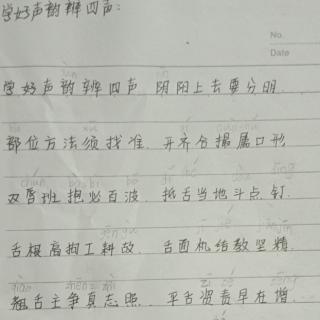 学好声韵辨四声:
No.
Date
学好声韵辨四声 阴阳上去要分明.
部位方法须找准. 开齐合撮属口形
双唇班抱必百波. 抵舌当地斗点钉.
舌根高狗工耕故. 舌面机结教坚精.
翘舌主争真志照. 平舌资责早在增.